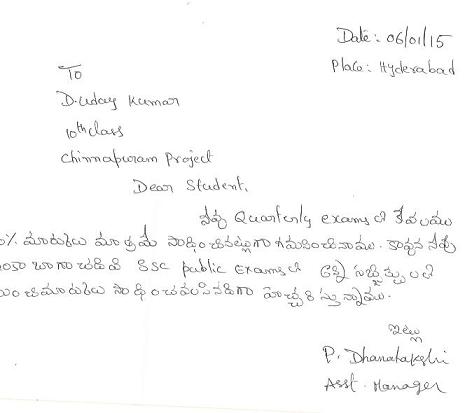 Date: 06/01/15
Place: Hyderabad
To
D. Uday Kumar
10th class
Chinnapuram Project
Dear Student,
నీవు Quarterly exams లో కేవలము
% మార్కులు మాత్రమే సాధించినట్లుగా గమనించినాము. కావున నీవు
బాగా చదివి SSC public Exams లో అన్ని సబ్జెక్ట్సు లలో
మంచి మార్కులు సాధించవలసినదిగా హెచ్చరిస్తున్నాము.
ఇట్లు
P. Dhanalakshi
Asst. Manager